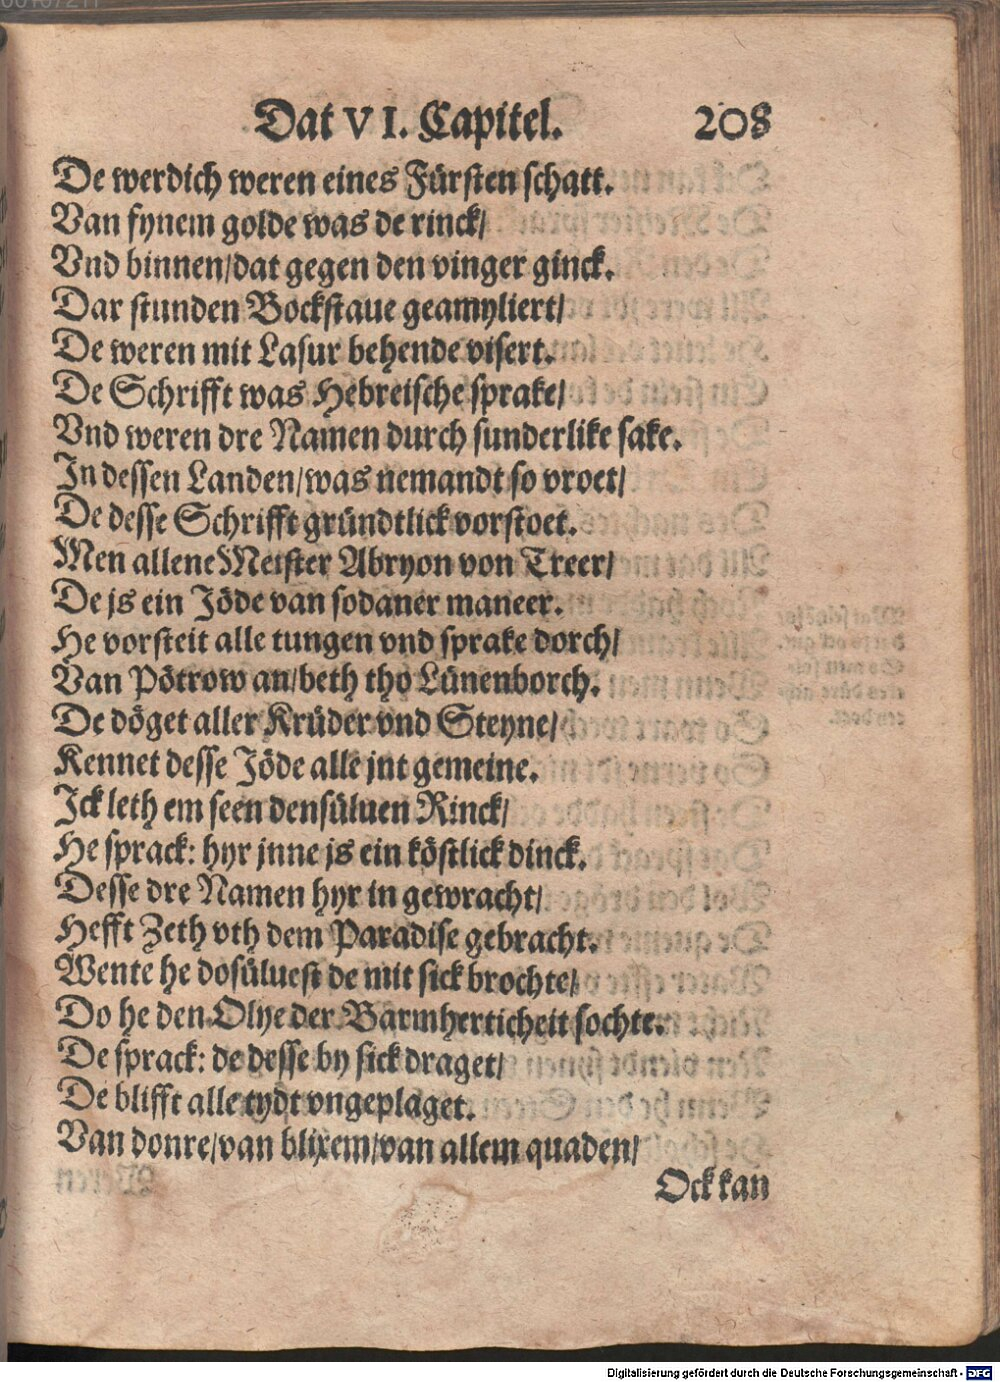 Dat VI. Capitel. 208
De werdich weren eines Fürsten schatt.
Van fynem golde was de rinck/
Vnd binnen/dat gegen den vinger ginck.
Dar stunden Bockstaue geamyliert/
De weren mit Lasur behende visert.
De Schrifft was Hebreische sprake/
Vnd weren dre Namen durch sunderlike sake.
In dessen Landen/was nemandt so vroet/
De desse Schrifft gründtlick vorstoet.
Men allene Meister Abryon von Treer/
De js ein Jöde van sodaner maneer.
He vorsteit alle tungen vnd sprake dorch/
Van Pötrow an/beth tho Lünenborch.
De döget aller Krüder vnd Steyne/
Kennet desse Jöde alle jnt gemeine.
Ick leth em seen densüluen Rinck/
He sprack: hyr jnne js ein köstlick dinck.
Desse dre Namen hyr in gewracht/
Hefft Zeth vth dem Paradise gebracht.
Wente he dosüluest de mit sick brochte/
Do he den Olye der Barmherticheit sochte.
De sprack: de desse by sick draget/
De blifft alle tydt vngeplaget.
Van donre/van blixem/van allem quaden/
Ock kan
Digitalisierung gefördert durch die Deutsche Forschungsgemeinschaft - DFG